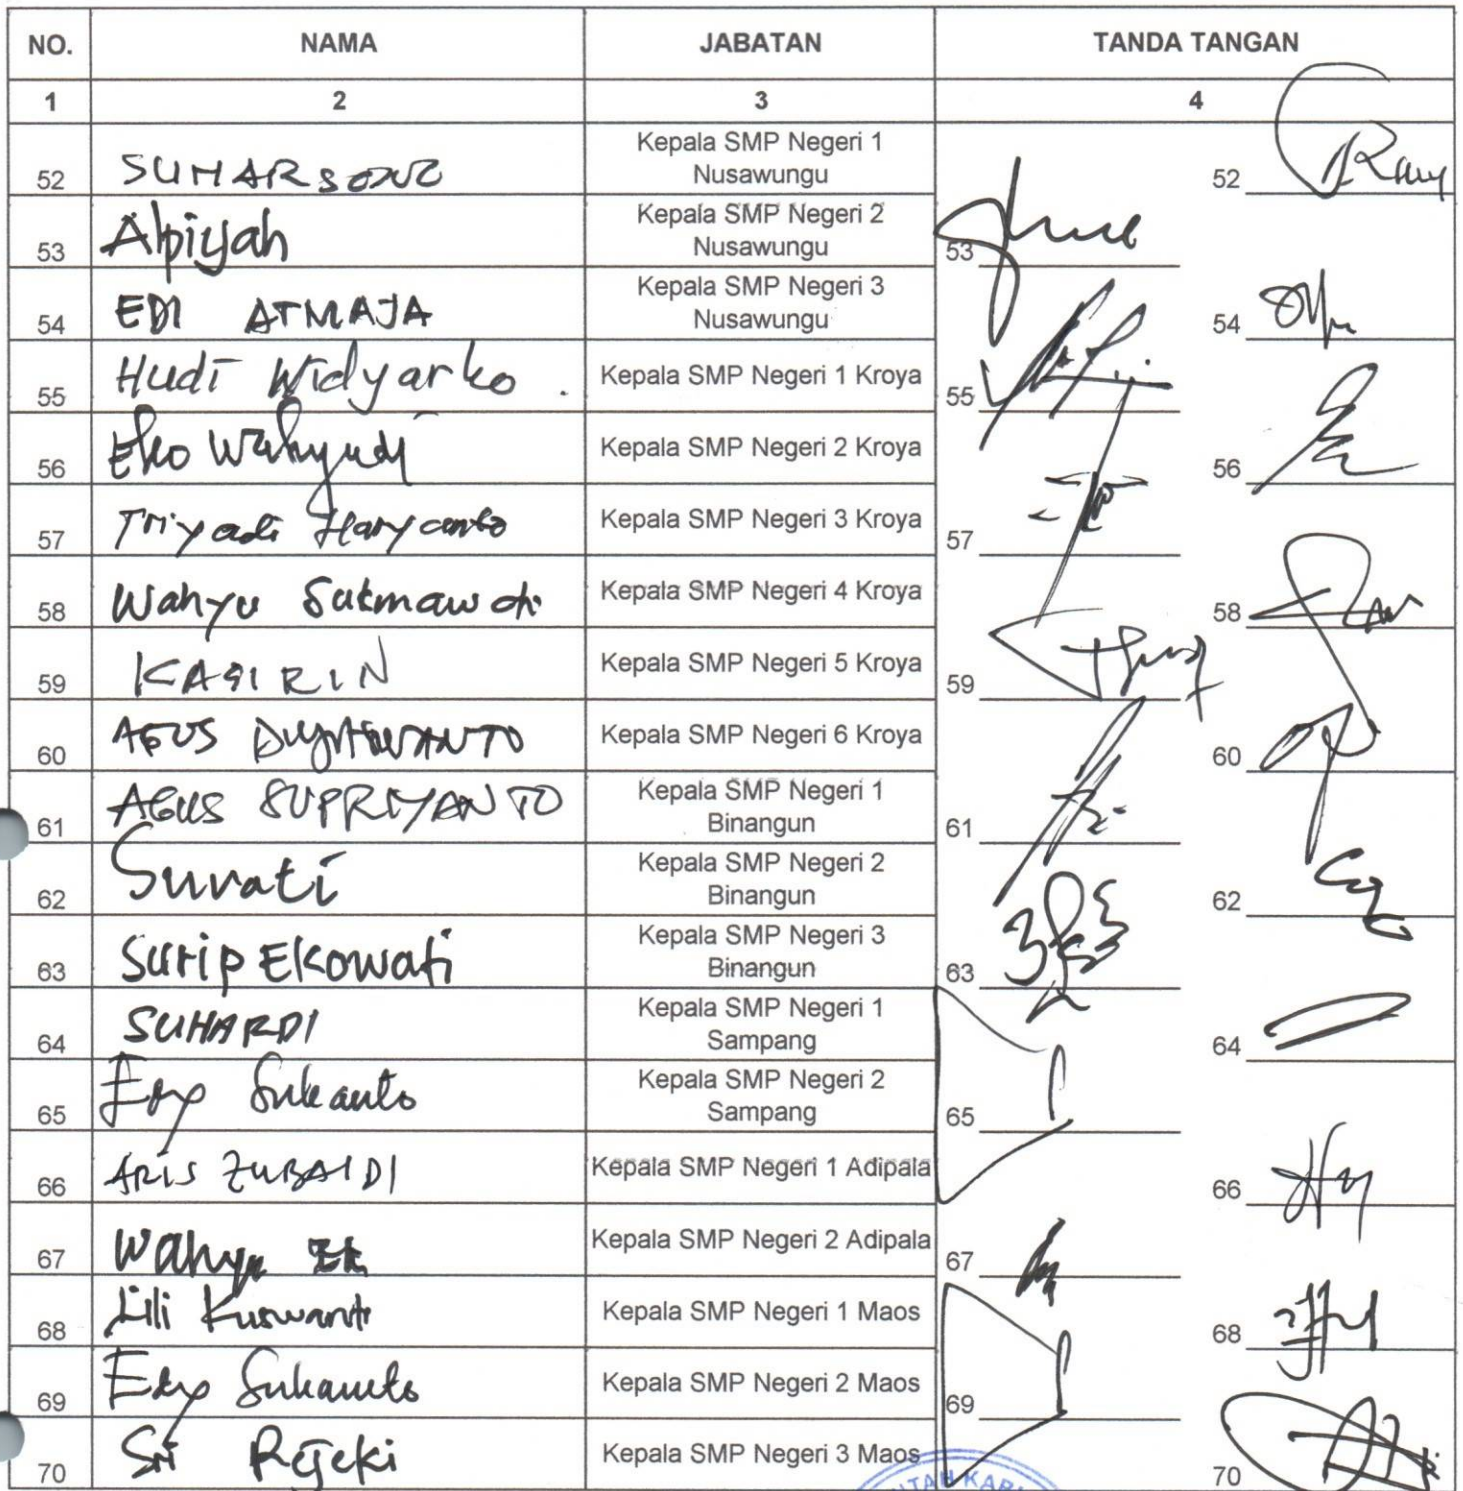 NO. NAMA JABATAN TANDA TANGAN
1 2 3 4
52 SUMARSONO Kepala SMP Negeri 1 52
Nusawungu
53 Alpiyah Kepala SMP Negeri 2 53
Nusawungu
54 EDI ATMAJA Kepala SMP Negeri 3 54
Nusawungu
55 Hudi Widyarko. Kepala SMP Negeri 1 Kroya 55
56 Eko Wahyudi Kepala SMP Negeri 2 Kroya 56
57 Triyadi Haryanto Kepala SMP Negeri 3 Kroya 57
58 Wahyu Sukmawati Kepala SMP Negeri 4 Kroya 58
59 KASIRIN Kepala SMP Negeri 5 Kroya 59
60 AGUS Kepala SMP Negeri 6 Kroya 60
61 AGUS SUPRIYANTO Kepala SMP Negeri 1 61
Binangun
62 Surati Kepala SMP Negeri 2 62
Binangun
63 Surip Ekowati Kepala SMP Negeri 3 63
Binangun
64 SUHARDI Kepala SMP Negeri 1 64
Sampang
65 Edy Sukamto Kepala SMP Negeri 2 65
Sampang
66 ARIS ZUBAIDI Kepala SMP Negeri 1 Adipala 66
67 Wahyu Kepala SMP Negeri 2 Adipala 67
68 Lili Kuswanti Kepala SMP Negeri 1 Maos 68
69 Edy Sukamto Kepala SMP Negeri 2 Maos 69
70 Sri Rejeki Kepala SMP Negeri 3 Maos 70